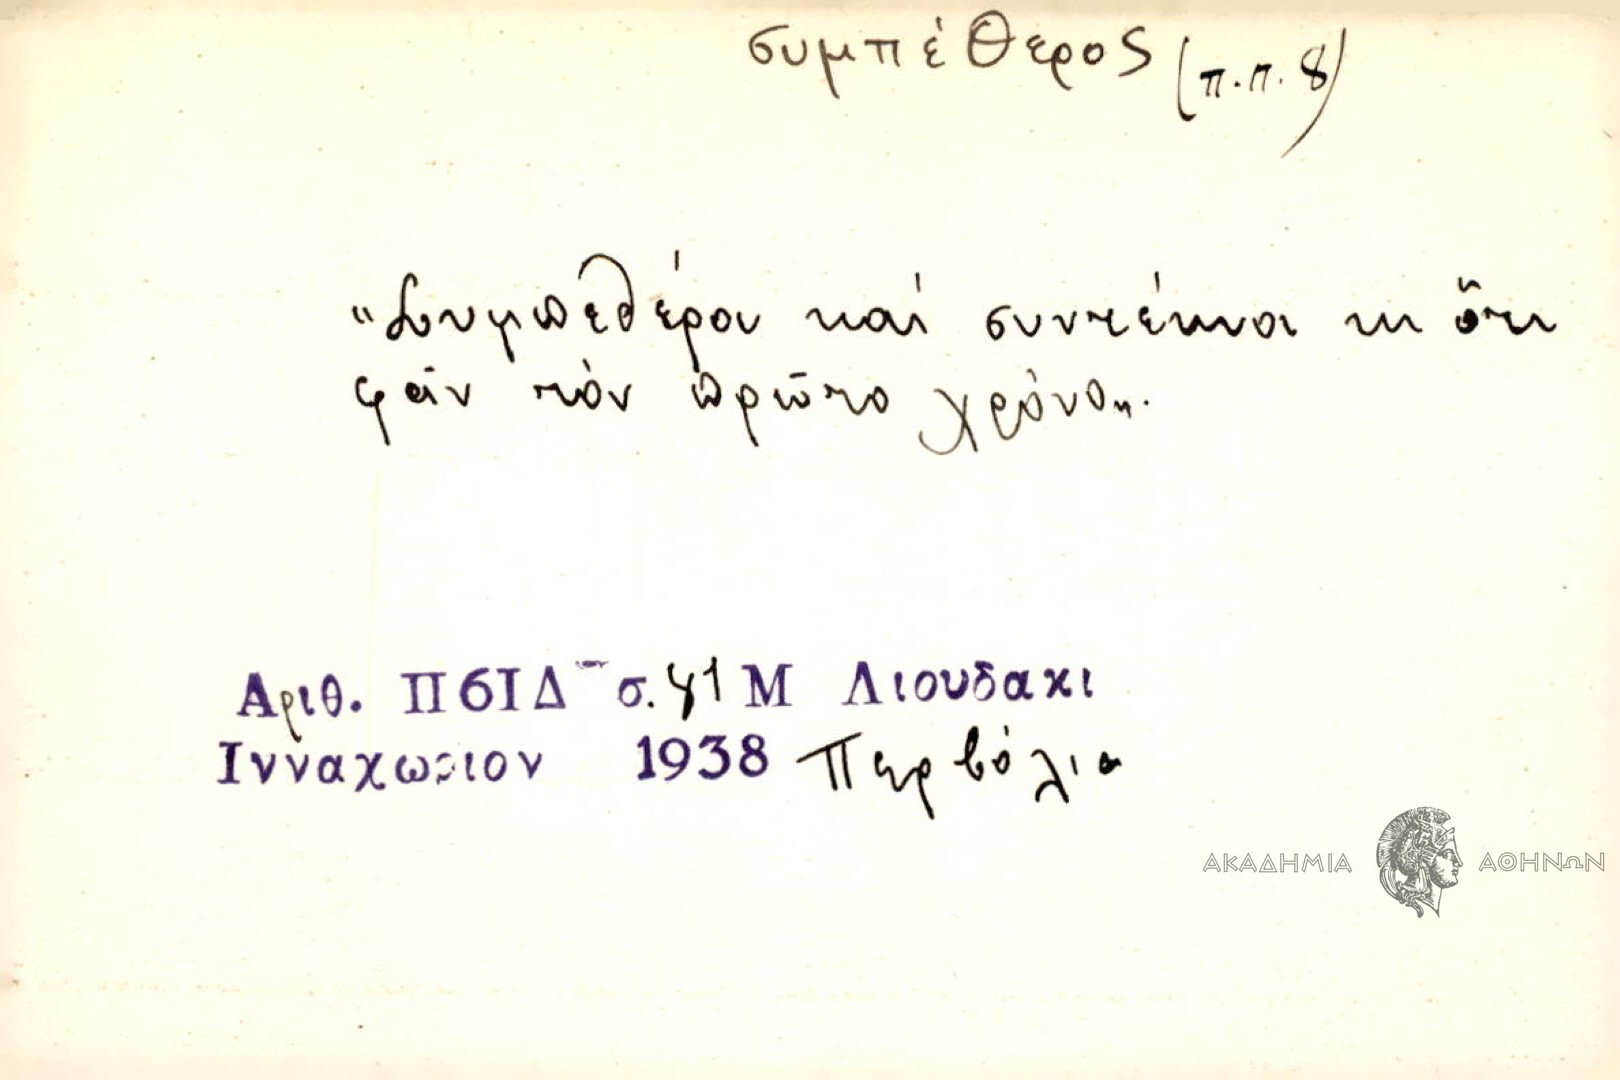 συμπέθερος (π.π. 8)
"Συμπεθέροι καί συντέκνοι κι ὅτι
φᾶν τὸν πρῶτο χρόνο".
Αριθ. Π6ΙΔ σ. 41 Μ Λιουδακι
Ινναχωριον 1938 Περβόλια
ΑΚΑΔΗΜΙΑ ΑΘΗΝΩΝ